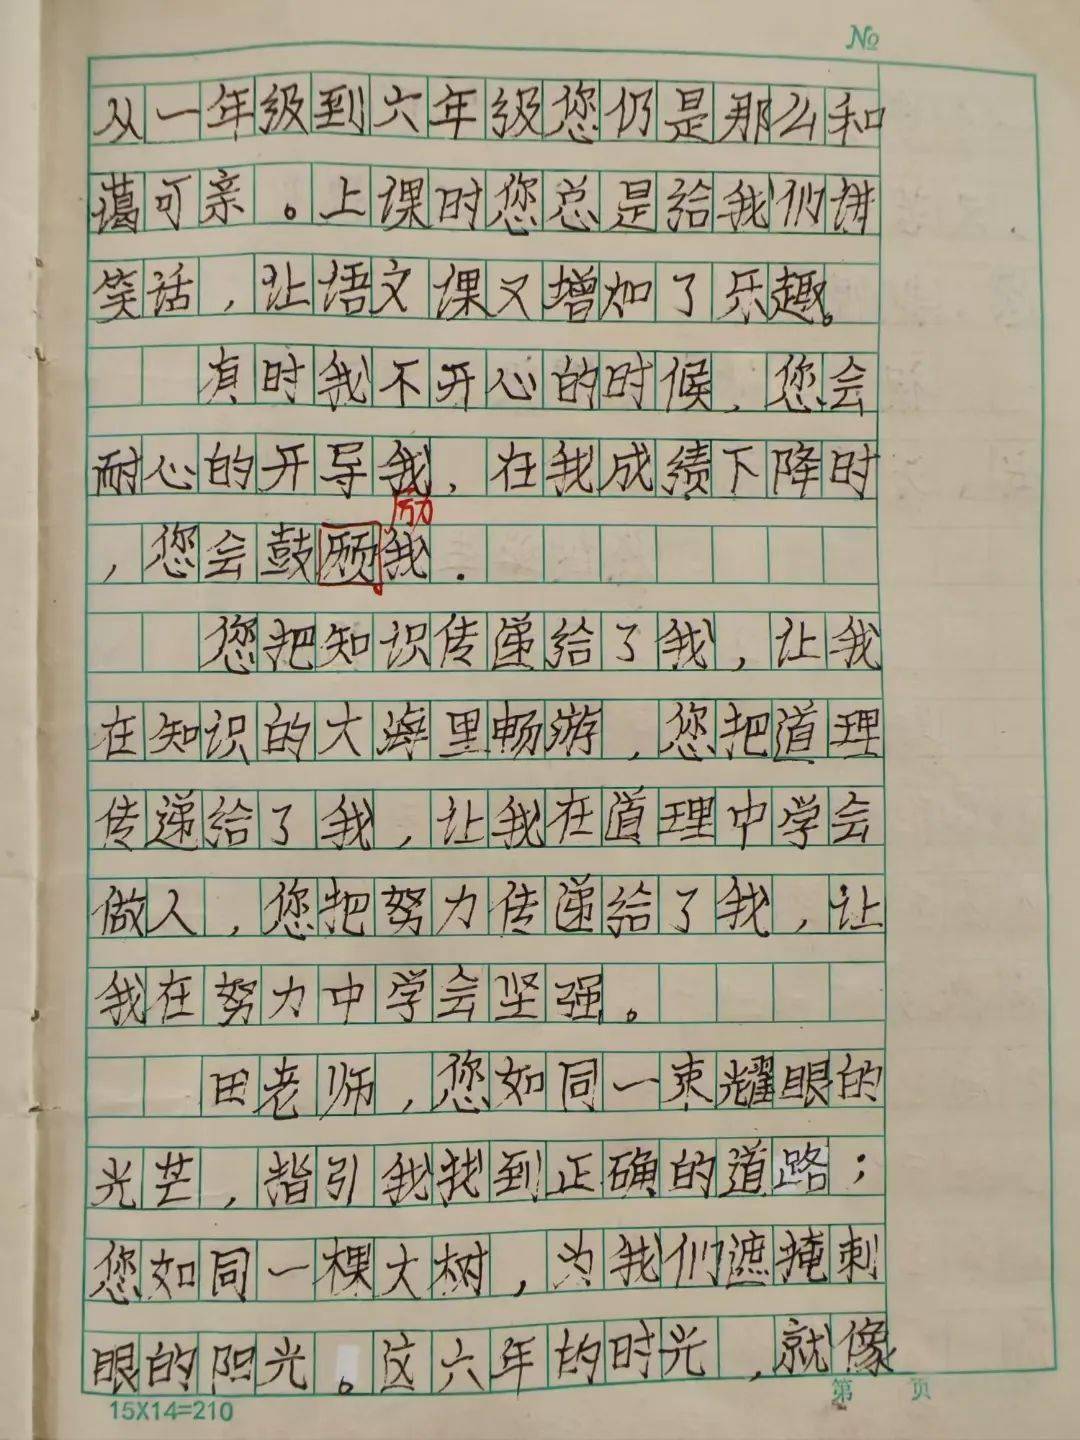 №
从一年级到六年级您仍是那么和
蔼可亲。上课时您总是给我们讲
笑话，让语文课又增加了乐趣。
有时我不开心的时候，您会
耐心的开导我，在我成绩下降时
励
，您会鼓我.
您把知识传递给了我，让我
在知识的大海里畅游，您把道理
传递给了我，让我在道理中学会
做人，您把努力传递给了我，让
我在努力中学会坚强。
田老师，您如同一束耀眼的
光芒，指引我找到正确的道路；
您如同一棵大树，为我们遮掩刺
眼的阳光。这六年的时光，就像
第 页
15X14=210